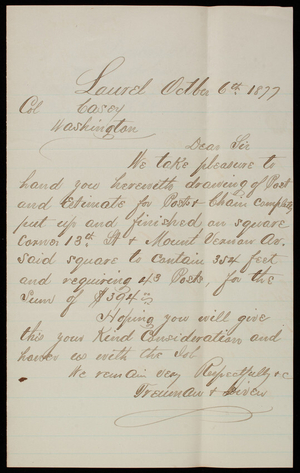 Laurel Octber 6th 1877
Col Casey
Washington
Dear Sir
We take pleasure to
hand you herewith drawing of Post
and Estimate for Posts & Chain Complete
put up and finished, on square
Corner 13th St & Mount Vernon Av.
said square to contain 354 feet
and requiring 43 Posts, for the
Sum of $594
Hoping you will give
this your Kind Consideration and
honor us with the Job
We remain very Respectfully &c
Freeman &